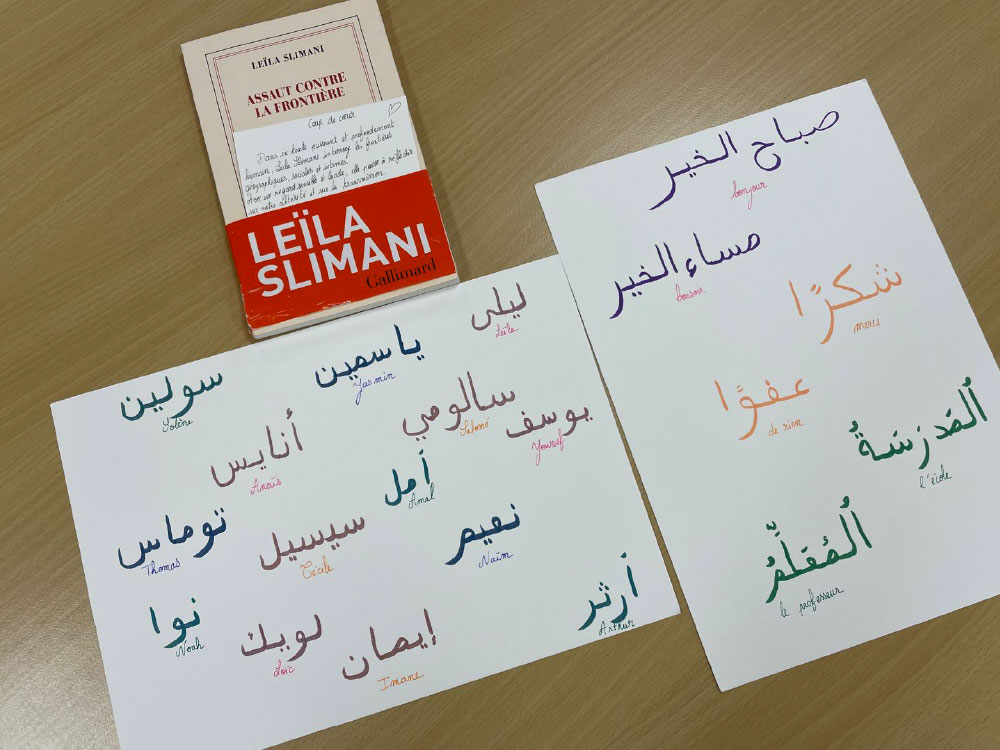 LEÏLA SLIMANI
ASSAUT CONTRE
LA FRONTIÈRE
Coup de cœur
Dans ce texte puissant et profondément
humain, Leïla Slimani interroge les frontières
géographiques, sociales et intimes.
D'un regard sensible et lucide, elle pousse à réfléchir
sur notre altérité et sur la transmission.
LEÏLA
SLIMANI
Gallimard
ليلى
Leïla
ياسمين
Yasmin
سولين
Solène
سالومي
Salomé
يوسف
Youssef
أنايس
Anaïs
أمل
Amal
توماس
Thomas
سيسيل
Cécile
نعيم
Naïm
أرثر
Arthur
نوا
Noah
لويك
Loïc
إيمان
Imane
صباح الخير
bonjour
مساء الخير
bonsoir
شكرًا
merci
عفوًا
de rien
اُلمَدرَسَةُ
l'école
اُلمُعَلِّمُ
le professeur